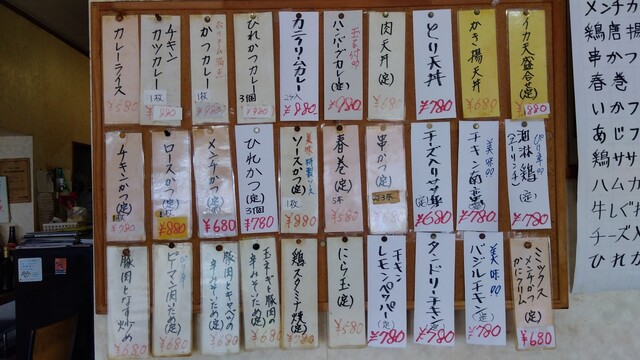 イカ天盛合(定)
¥880
かき揚天丼
¥680
とり天丼
¥780
肉天丼(定)
¥680
ハンバーグカレー(定)
¥980
カニクリームカレー
2ケ入
¥880
ひれかつカレー
3個
かつカレー
1枚
チキンカツカレー
1枚
カレーライス
¥580
ピリ辛
油淋鶏
(ユーリンチー)
(定)
¥780
美味
チキン南蛮
(定)
¥780
(定)
¥680
串かつ(定)
春巻(定)
5本
¥580
美味
ソースかつ(定)
1枚
¥880
ひれかつ(定)
3個
¥780
メンチかつ(定)
¥680
ロースかつ(定)
¥880
チキンかつ(定)
¥780
ミックス
メンチかつ
かにクリーム
(定)
¥680
美味
バジルチキン(定)
¥780
タンドリーチキン(定)
¥780
チキンレモンペッパー(定)
¥780
にら玉(定)
¥580
鶏スタミナ焼(定)
¥680
玉ネギと豚肉の辛みそいため(定)
¥680
豚肉とキャベツの辛みそいため(定)
¥680
ピリ辛
ピーマン肉いため(定)
¥680
豚肉となす炒め
¥680
メンチカ
鶏唐揚
串かつ
春巻
いかフ
あじフ
鶏ササ
ハムカ
牛しぐ
チーズ入
ひれか